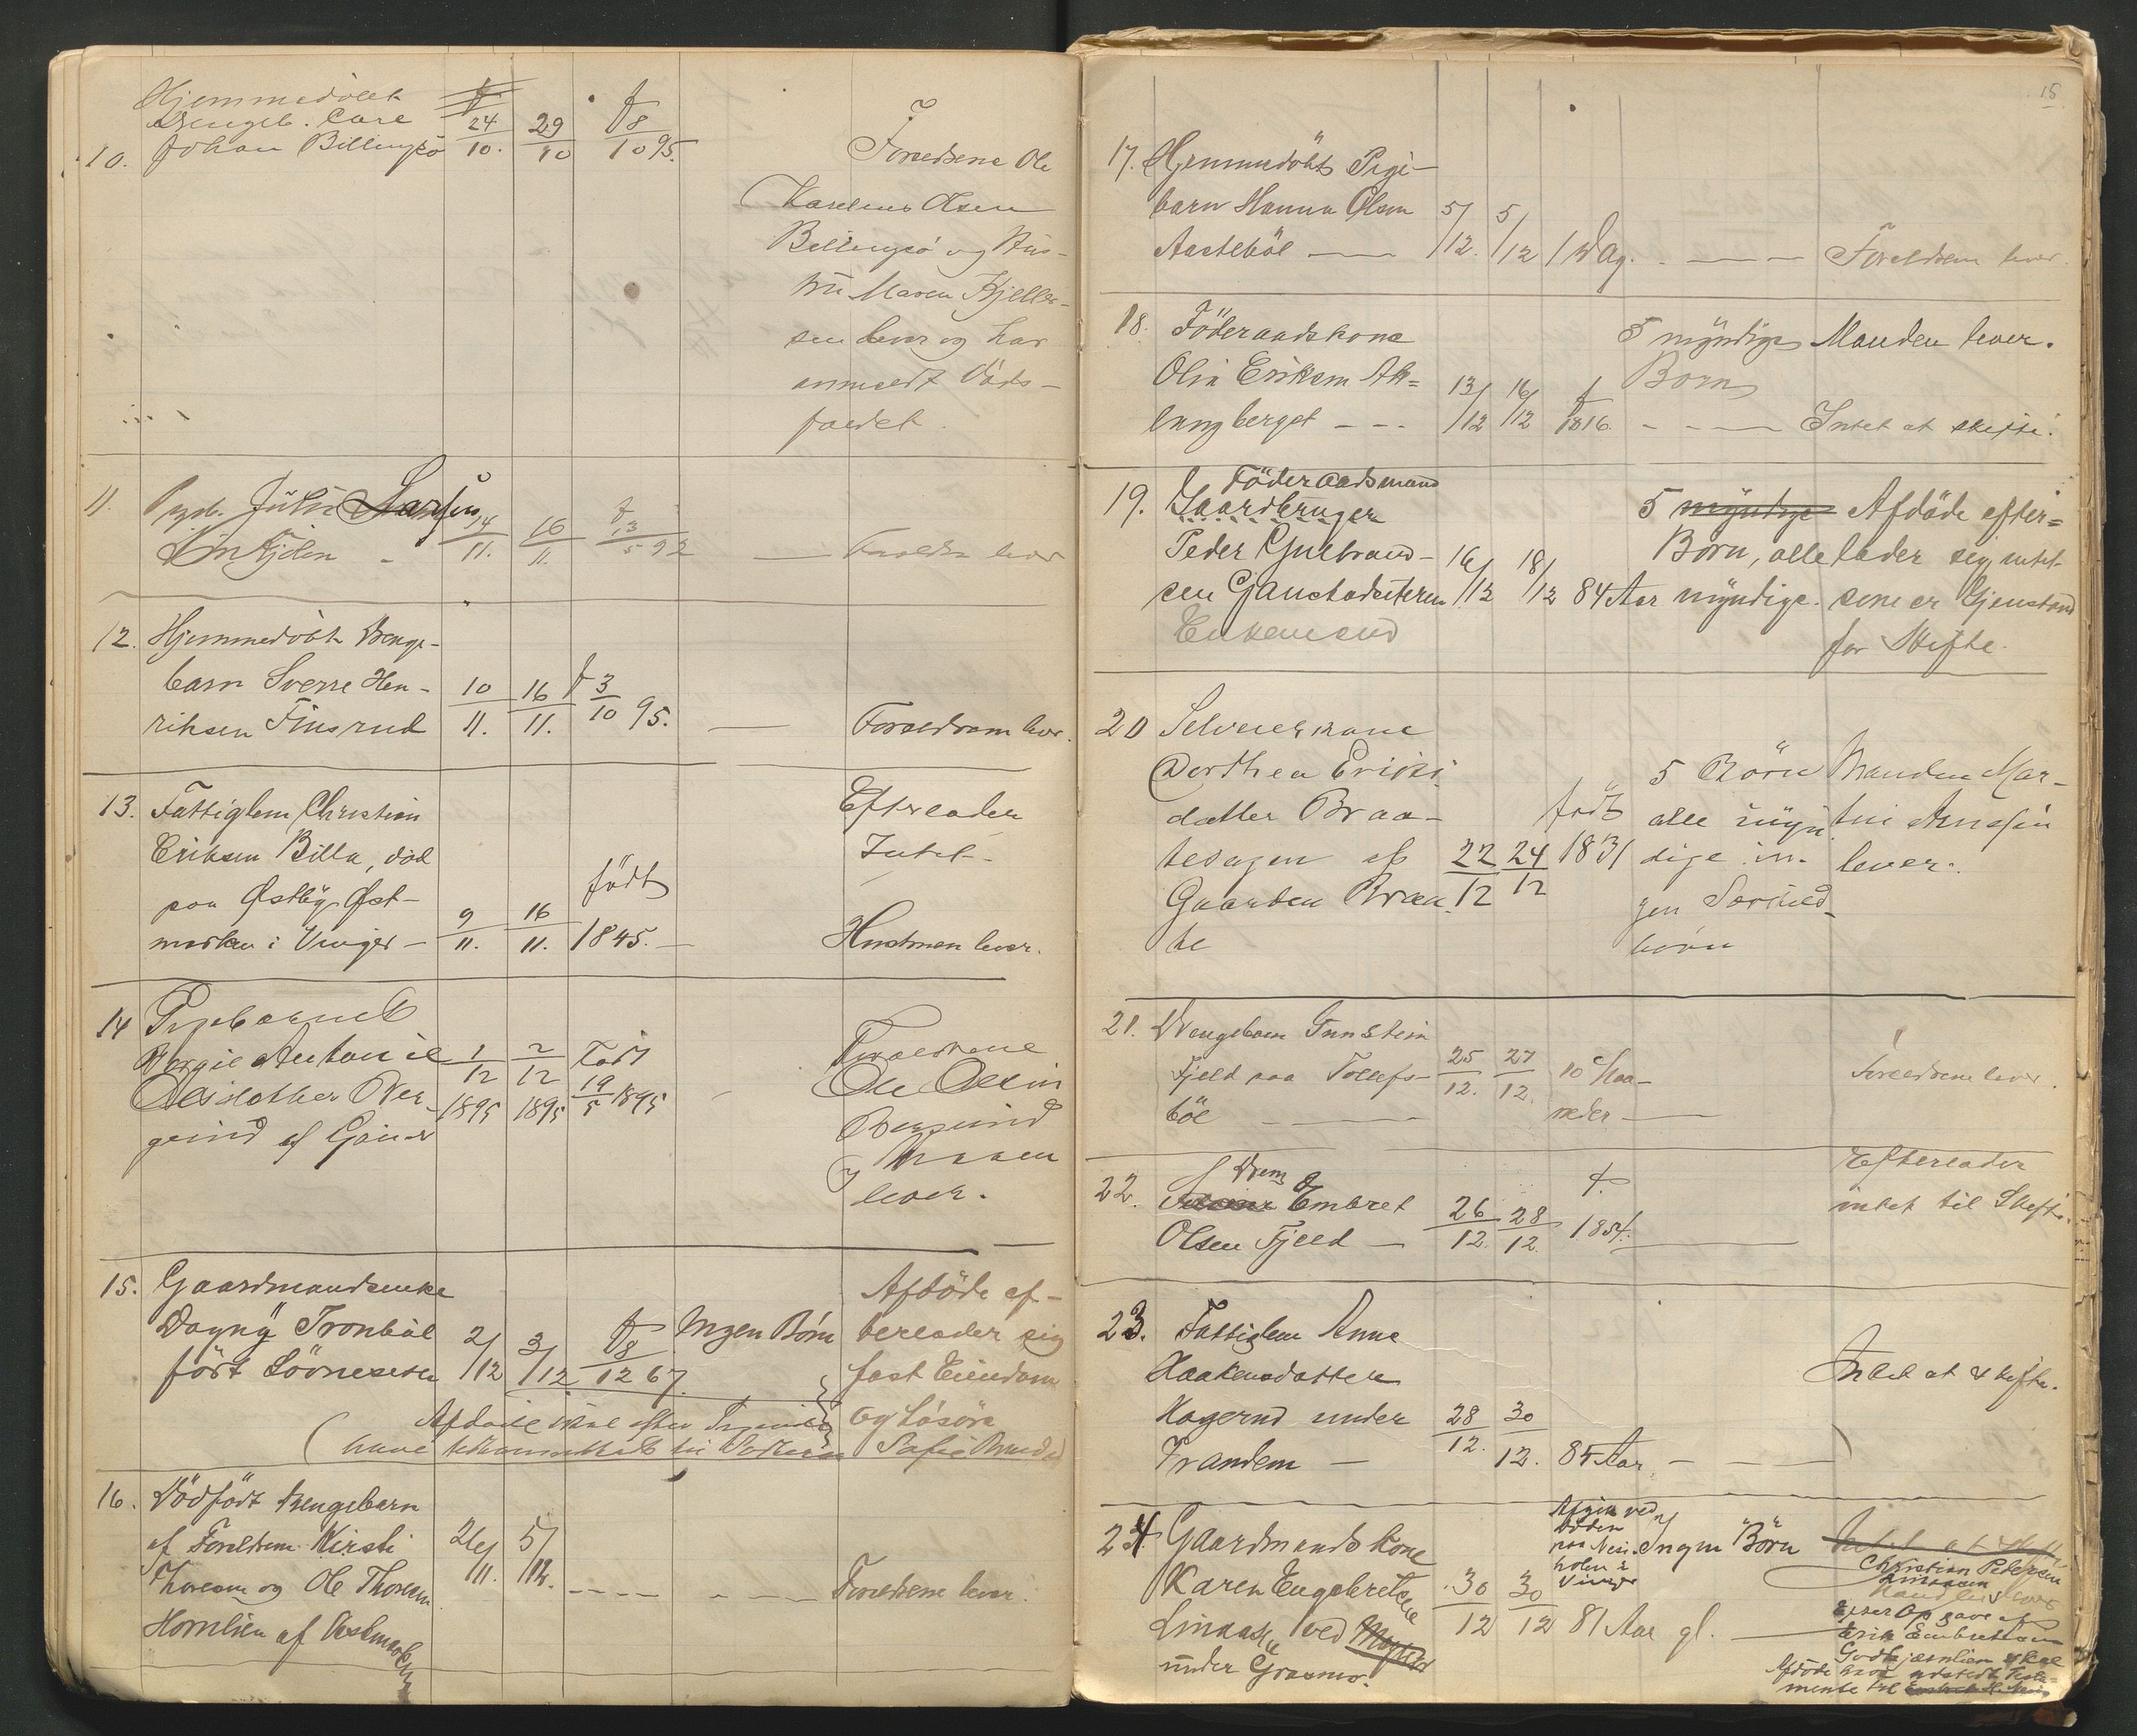 Hjemmedöbt
Drengeb. Carl
10. Johan Billingsö 24/10. 29/10 f 8/10 95.
Forældrene Ole
Karelius Olsen
Billingsö og Hus-
tru Maren Kjeller-
sen lever og har
anmeldt Döds-
faldet.
11. Pigeb. Julie Larsen 14/11. 16/11. f 13/5 92
Foreldre lever
12. Hjemmedöbt Drenge-
barn Sverre Hen-
riksen Finsrud 10/11. 16/11. f 3/10 95. — Foraeldrene lever.
13. Fattiglem Christian
Eriksen Billa, död
paa Østby Øst-
marken i Vinger — 9/11. 16/11. födt 1845. —
Efterlader
Intet -
Hustruen lever.
14 Pigebarnet
Borgil Antonie
Olsdatter Ber-
gerud af
1/12 1895 2/12 1895 Födt 19/5 1895
Foraeldrene
Ole Olsen
Bergerud
lever.
15. Gaardmandsenke
Dagny Tronböl
födt Lövnesseter 2/12 3/12 f 8/12 67.
Ingen Börn
Afdöde ef-
terlader sig
fast Eiendom
og Lösöre
16. Dödfödt Drengebarn
af Foreldrene Kirsti
Thoresen og Ole Thoresen
Hornlien af Vestmarken
26/11. 5/12. ---- Foreldrene lever.
15
17. Hjemmedöbt Pige-
barn Hanna Olsen
Aasteböl — 5/12. 5/12 1 Dag. - — — Foreldrene lever.
18. Föderaadskone
Olia Eriksen Ak-
langberget - - - 13/12 16/12 f 1816.
5 myndige
Born
Manden lever.
Intet at skifte.
19. Föderaadsmand
Gaardbruger
Peder Gulbrand-
sen 16/12 18/12 84 Aar
Enkemand
5 myndige
Börn, alle
myndige.
Afdöde efter-
lader sig intet
som er Gjenstand
for Skifte.
20 Selveierkone
Dorthea Eriks-
datter Braa-
tehagen af
Gaarden Braa-
te
22/12 24/12 födt 1831
5 Börn
alle myn-
dige in-
gen Særkuld-
börn
Manden Mar-
tin Arnesen
lever.
21. Drengebarn Gunstein
Fjeld paa Tollefs-
böl — 25/12. 27/12. 10 Maa-
neder —
Foreldrene lever.
22. Dreng
Embret
Olsen Fjeld — 26/12. 28/12. f. 1854. —
Efterlader
intet til Skifte.
23. Fattiglem Anne
Haakensdatter
Hagerud under
Vrandem — 28/12. 30/12. 85 Aar - — —
Intet at skifte.
24 Gaardmandskone
Karen Engebretsen
Linnaas ved Mogerud
under Grasmo.
30/12 30/12 81 Aar gl. —
Afgik ved
Döden
paa Nesi-
holen i
Vinger
Ingen Börn
Intet at skifte
Christian Pedersen
Linnaasen
Mand lever
Efter Opgave af
Erik Embretsen
Godtjærnlien skal
Afdöde have udstedt Testa-
mente til